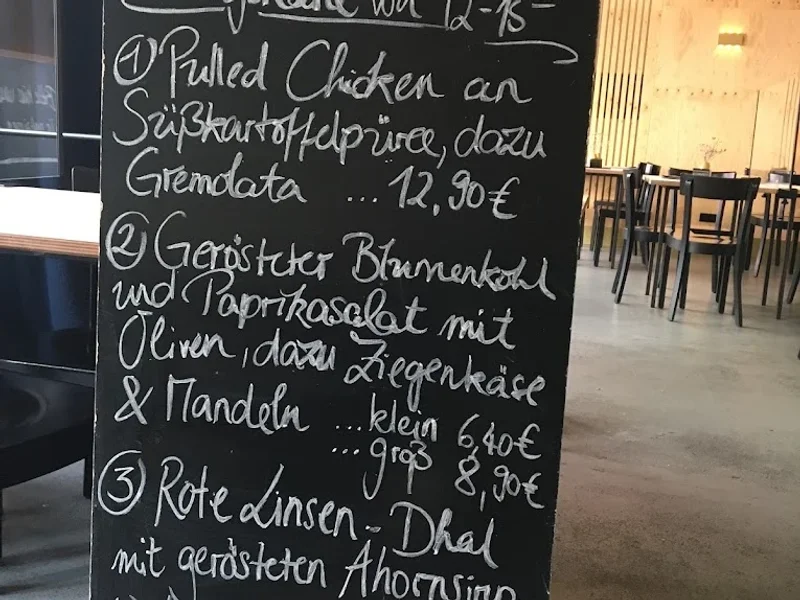 von 12-15
① Pulled Chicken an
Süßkartoffelpüree, dazu
Gremolata ... 12,90€
② Gerösteter Blumenkohl
und Paprikasalat mit
Oliven, dazu Ziegenkäse
& Mandeln ... klein 6,40€
... groß 8,90€
③ Rote Linsen-Dhal
mit gerösteten Ahornsirup